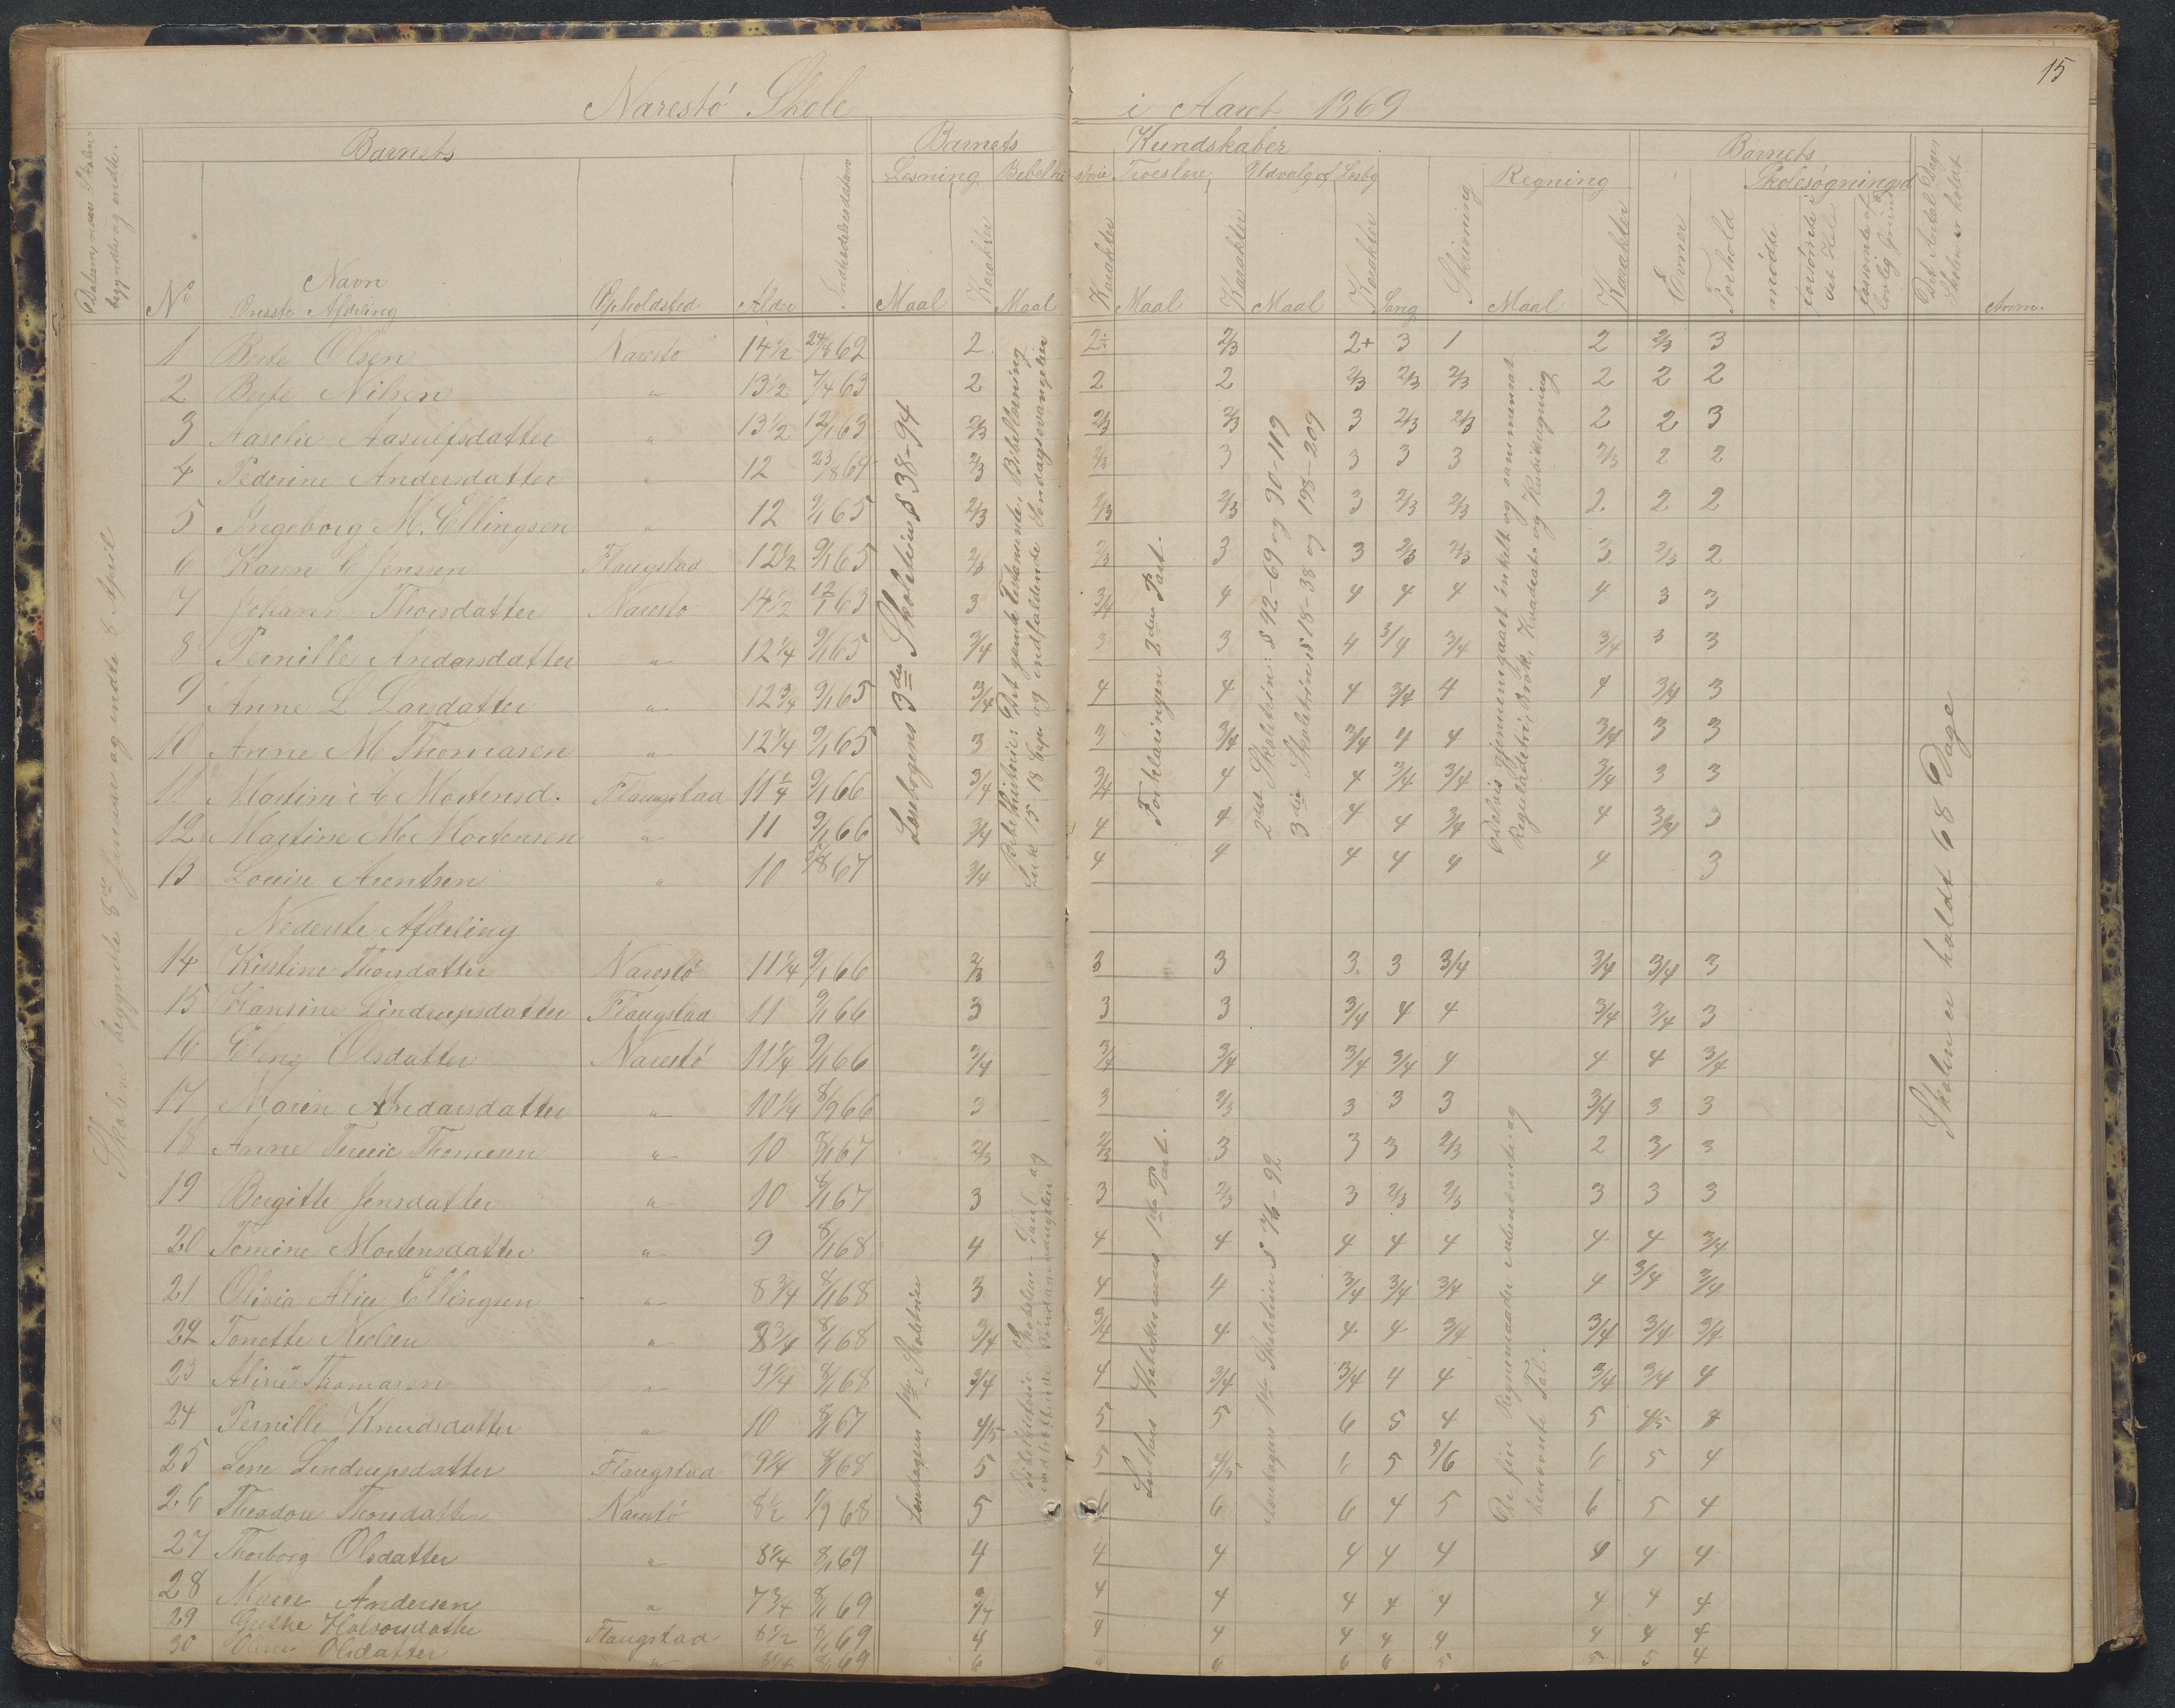 15
Narestö Skole i Aaret 1869
Datum, naar Skolen begyndte og endte.
Barnets
Barnets Kundskaber
Barnets
Læsning Bibelhistorie Troeslære Udvalg af Læsbg Regning Skolesøgning
Det Antal Dage, Skolen er holdt
No Navn Opholdsted Alder Indtrædelsesdatum Maal Karakter Maal Karakter Maal Karakter Maal Karakter Sang Skrivning Maal Karakter Evner Forhold mödte forsömte i det Hele forsömte af lovlig Grund Anm.
Øverste Afdeling
Skolen begyndte 8de Januar og endte 8 April
Læsebogens 3die Skoletrin § 38-94
Bibelhistorie: Det gamle Testamente, Bibellæsning
Luk 15, 18 Cap. og indfaldende Søndagsevangelier
Forklaringen 2den Part.
2det Skoletrin: § 42-69 og 90-119
3die Skoletrin § 18-38 og 198-209
Delvis gjennemgaaet enkelt og sammensat
Reguladetri, Brök, Kvadrat- og Kubikregning
Skolen er holdt 68 Dage
1 Berte Olsen Narestö 14½ 24/8 62 2 2÷ 2/3 2+ 3 1 2 2/3 3
2 Berte Nilsen " 13½ 7/4 63 2 2 2 2/3 2/3 2/3 2 2 2
3 Aaselie Aasulfsdatter " 13½ 12/1 63 2/3 2/3 2/3 3 2/3 2/3 2 2 3
4 Pederine Andersdatter " 12 23/8 64 2/3 2/3 3 3 3 3 2/3 2 2
5 Ingeborg M. Ellingsen " 12 9/1 65 2/3 2/3 2/3 3 2/3 2/3 2 2 2
6 Karen C Jensen Flaugstad 12½ 9/1 65 2/3 2/3 3 3 2/3 2/3 3 2/3 2
7 Johanne Thorsdatter Narestö 14½ 12/1 63 3 3/4 4 4 4 4 4 3 3
8 Pernille Andersdatter " 12¼ 9/1 65 3/4 3 3 4 3/4 3/4 3/4 3 3
9 Anne L Larsdatter " 12¾ 9/1 65 3/4 4 4 4 3/4 4 4 3/4 3
10 Anne M Thomasen " 12¼ 9/1 65 3 3 3/4 3/4 4 4 3/4 3 3
11 Martine A Mortensd. Flaugstad 11¼ 9/1 66 3/4 3/4 4 4 3/4 3/4 3/4 3 3
12 Martine M Mortensen " 11 9/1 66 3/4 4 4 4 4 3/4 4 3/4 3
13 Louise Arentsen " 10 67 3/4 4 4 4 4 4 4 3
Nederste Afdeling
Læsebogens 1ste Skoletrin
indtræffende Søndagsevangelier
Luthers Katekismus 1ste Part.
Læsebogens 1ste Skoletrin § 76-92
De fire Regnemaader i ubenævnte og
benævnte Tal.
14 Kirstine Thorsdatter Narestö 11¼ 9/1 66 2/3 3 3 3 3 3/4 3/4 3/4 3
15 Hansine Lindrupsdatter Flaugstad 11 9/1 66 3 3 3 3/4 4 4 3/4 3/4 3
16 Eleng Olsdatter Narestö 11¼ 9/1 66 3/4 3/4 3/4 3/4 3/4 4 4 4 3/4
17 Maren Andersdatter " 10¼ 8/9 66 3 3 2/3 3 3 3 3/4 3 3
18 Anne Thomesen " 10 8/1 67 2/3 2/3 3 3 3 2/3 2 3 3
19 Bergitte Jensdatter " 10 8/1 67 3 3 2/3 3 2/3 2/3 3 3 3
20 Tomine Mortensdatter " 9 8/1 68 4 4 4 4 4 4 4 4 3/4
21 Olivia Alice Ellingsen " 8¾ 8/1 68 3 4 4 3/4 3/4 3/4 4 3/4 3/4
22 Tonette Nielsen " 8¾ 8/1 68 3/4 3/4 4 4 4 3/4 3/4 3/4 3/4
23 Aline Thomasen " 9¼ 8/1 68 3/4 4 3/4 3/4 4 4 3/4 3/4 4
24 Pernille Knudsdatter " 10 8/1 67 4/5 5 5 6 5 4 5 4/5 4
25 Lene Lindrupsdatter Flaugstad 9¼ 8/1 68 5 5 4/5 6 5 5/6 6 5 4
26 Theodore Thorsdatter Narestö 8½ 1/9 68 5 6 6 6 4 5 6 5 4
27 Thorborg Olsdatter " 8¼ 8/1 69 4 4 4 4 4 4 4 4 4
28 Maren Andersen " 7¾ 8/1 69 3/4 4 4 4 4 4 4 4 4
29 Halvorsdatter Flaugstad 8½ 8/1 69 4 4 4 4 4 4 4 4 4
30 Olsdatter " 8/1 69 6 6 6 6 5 5 5 4